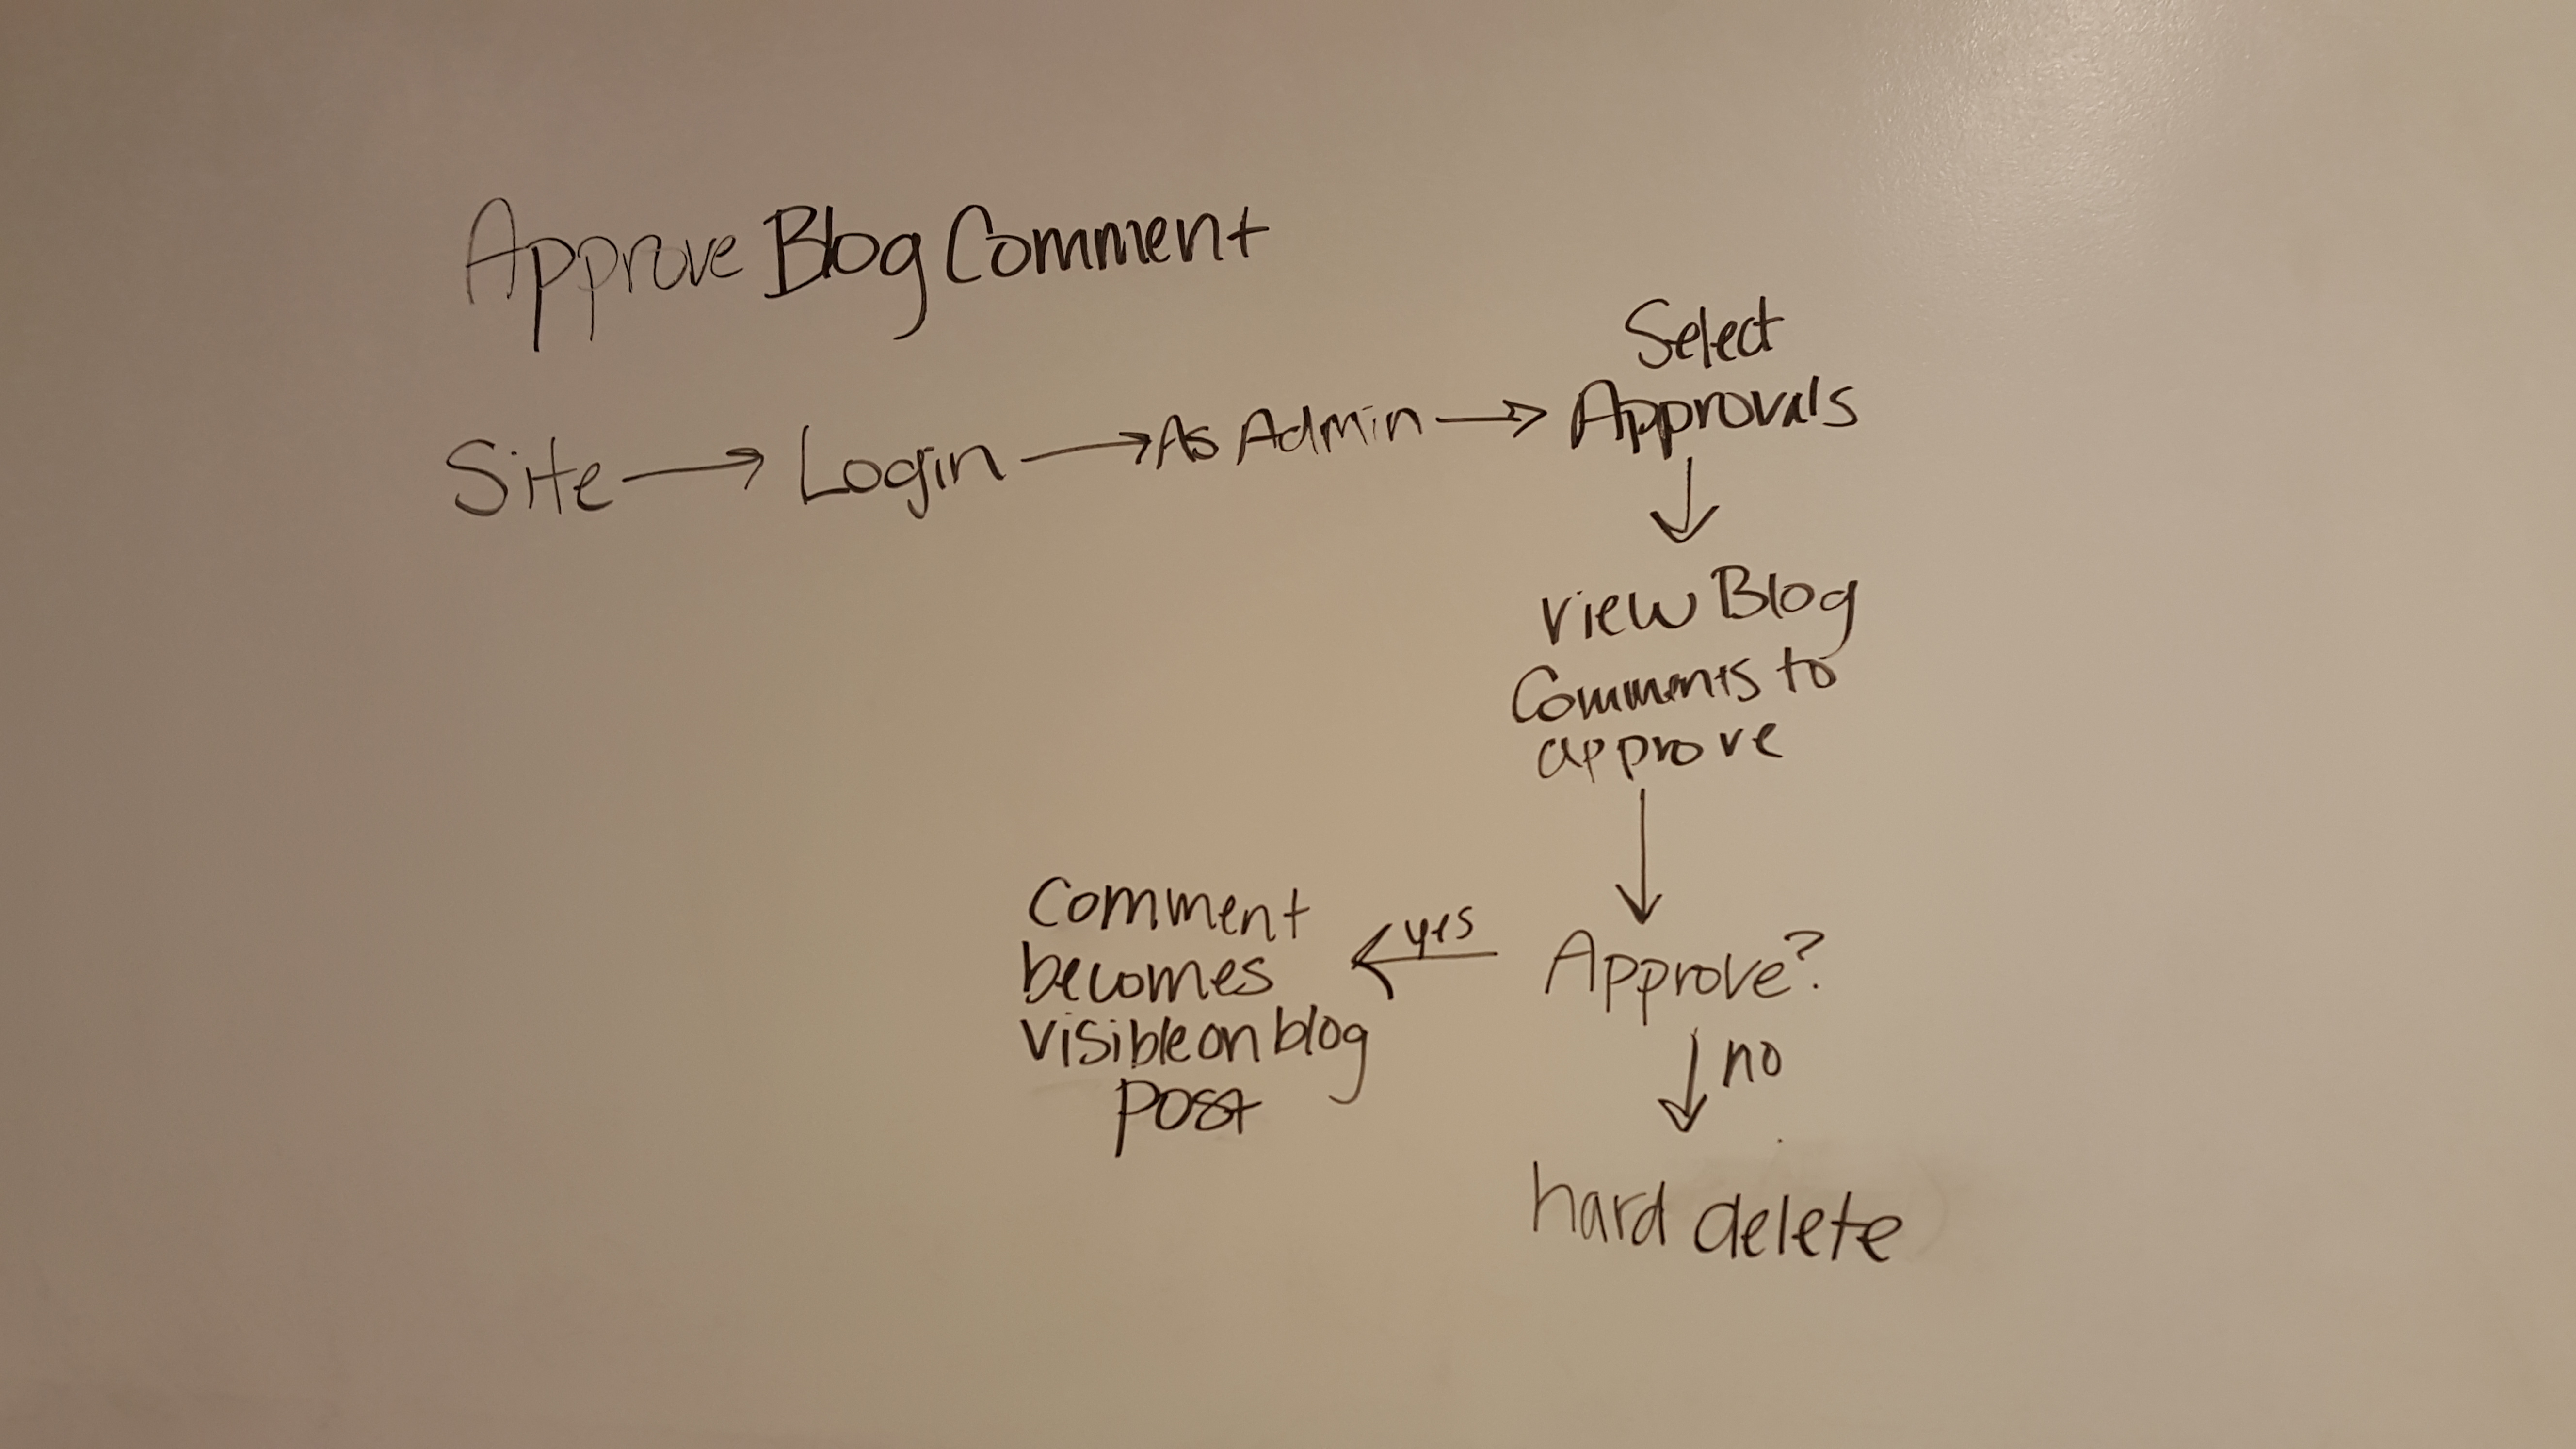 Approve Blog Comment
Site → Login → As Admin → Select
Approvals
view Blog
Comments to
approve
Approve?
yes
Comment
becomes
visible on blog
post
no
hard delete